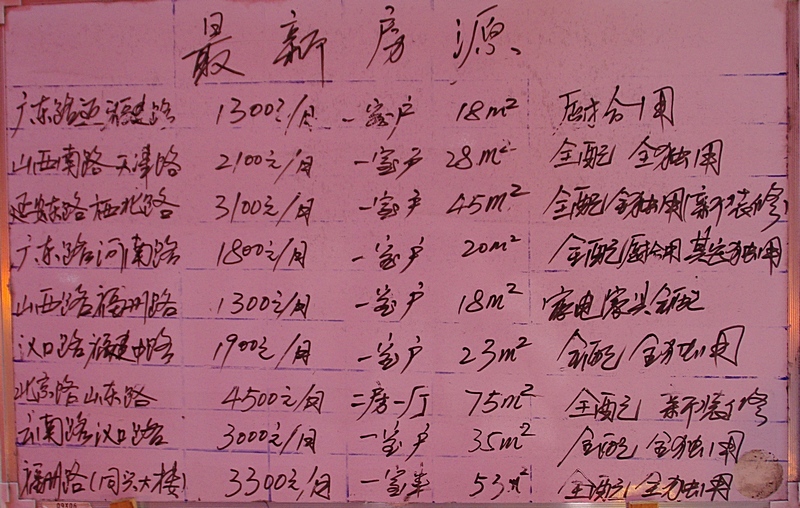 最新房源
广东路近福建路 1300元/月 一室户 18m² 厨合用
山西南路天津路 2100元/月 一室户 28m² 全配 全独用
延安东路河北路 3100元/月 一室户 45m² 全配 全独用(新装修)
广东路河南路 1800元/月 一室户 20m² 全配厨合用其它独用
山西路福州路 1300元/月 一室户 18m² 家电家具全配
汉口路福建中路 1900元/月 一室户 23m² 全配 全独用
北京路山东路 4500元/月 二房一厅 75m² 全配 新装修
云南路汉口路 3000元/月 一室户 35m² 全配 全独用
福州路(同兴大楼) 3300元/月 一室半 53m² 全配 全独用